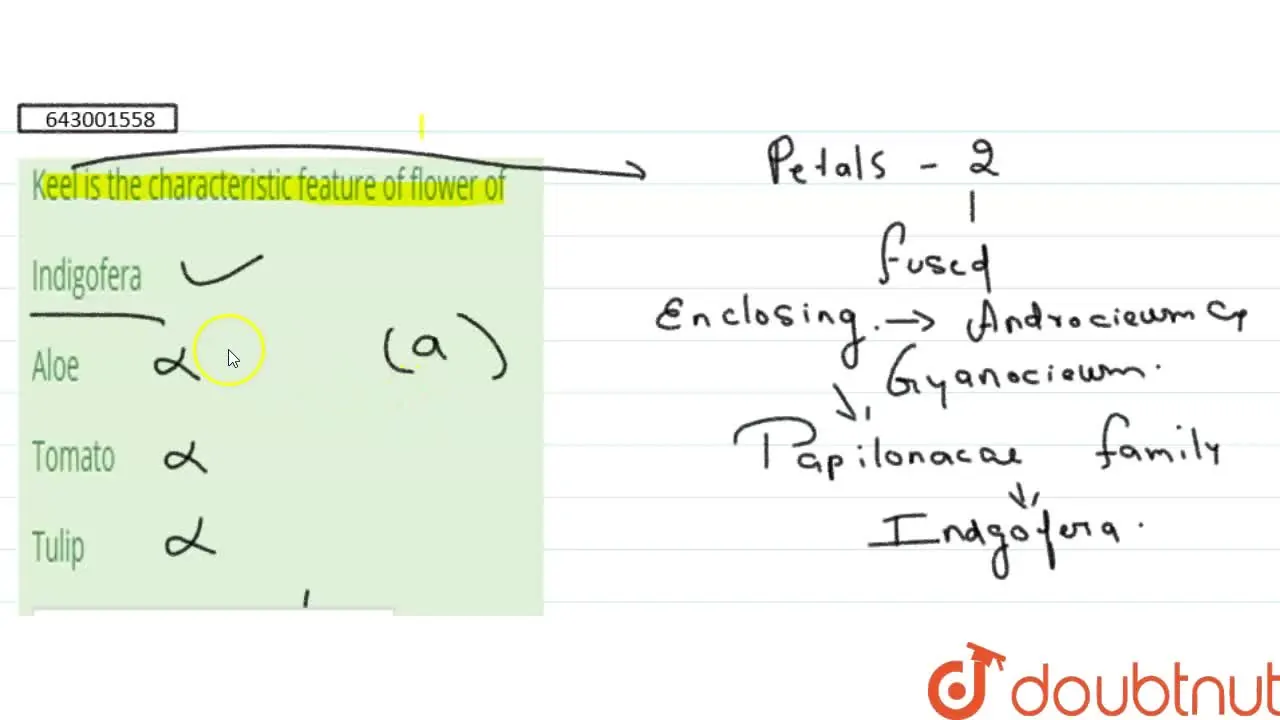 643001558
Keel is the characteristic feature of flower of
Indigofera
Aloe
(a)
Tomato
Tulip
Petals - 2
fused
Enclosing. → Androcieum Cp
Gyanocieum.
Papilonacae family
Indgofera.
doubtnut